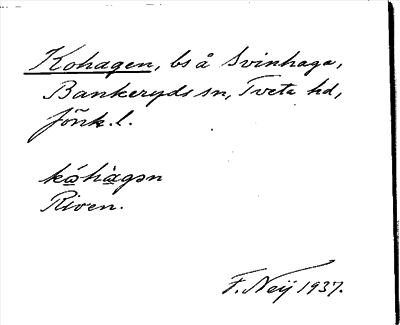 Kohagen, bs å Svinhaga,
Bankeryds sn, Tveta hd,
Jönk. l.
kóhàgən
Riven.
F. Neij 1937.